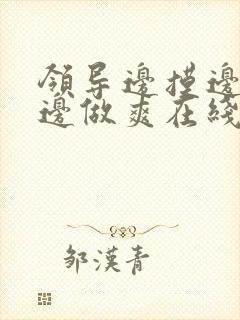 領导邊摸邊
邊做爽在綫
邹漢青